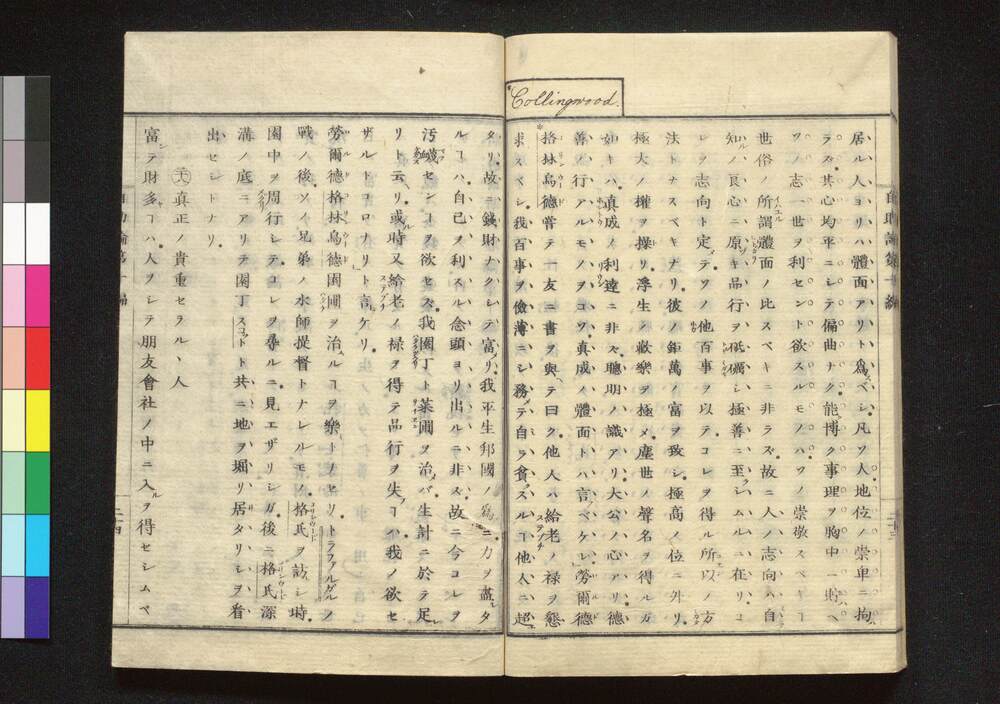 Collingwood.
居ル人ヨリハ體面アリト爲ベシ。凡ソ人。地位ノ崇卑ニ拘
ラズ。其心均平ニシテ偏曲ナク。能博ク事理ヲ胸中ニ貯ヘ
ソノ志一世ヲ利セント欲スルモノハ。ソノ崇敬スベキヿ
世俗ノ所謂體面ノ比スベキニ非ラズ。故ニ人ノ志向ハ自
知ノ良心ニ原キ品行ヲ砥礪シ極善ニ至ラシムルニ在リ。コ
レヲ志向ト定テ。ソノ他百事ヲ以テコレヲ得ル所以ノ方
法トナスベキナリ。彼ノ鉅萬ノ富ヲ致シ。極高ノ位ニ外リ。
極大ノ權ヲ操リ。浮生ノ歡樂ヲ極メ。塵世ノ聲名ヲ得ルガ
如キハ。真成ノ利達ニ非ズ。聰明ノ識アリ。大公ノ心アリ。德
善ノ行アルモノヲコソ。真成ノ體面トハ言ベケレ。勞爾德
格林烏德嘗テ一友ニ書ヲ與テ曰ク。他人ハ給老ノ禄ヲ懇
求スベシ。我百事ヲ儉薄ニシ。務テ自ラ貧スルヿ他人ニ超
タリ。故ニ錢財ナクシテ富リ。我平生邦國ノ爲ニ力ヲ盡タ
ルヿハ。自己ヲ利スル念頭ヨリ出ルニ非ズ。故ニ今コレヲ
汚衊センヿヲ欲セズ。我園丁ト菜圃ヲ治バ。生計ニ於テ足
リト云リ。或時又給老ノ禄ヲ得テ品行ヲ失フハ。我ノ欲セ
ザルトコロナリト言ケリ。
勞爾德格林烏德園圃ヲ治ルヿヲ樂トナセリ。トラファルゲルノ
戰ノ後。ソノ兄弟ノ水師提督トナレルモノ。格氏ヲ訪シ時。
園中ヲ周行シテコレヲ尋ルニ見エザリシガ。後ニ格氏深
溝ノ底ニアリテ園丁スコットト共ニ地ヲ堀リ居タリシヲ看
出セシトナリ。
真正ノ貴重セラルヽ人
富テ財多ヿハ。人ヲシテ朋友會社ノ中ニ入ルヲ得セシムベ